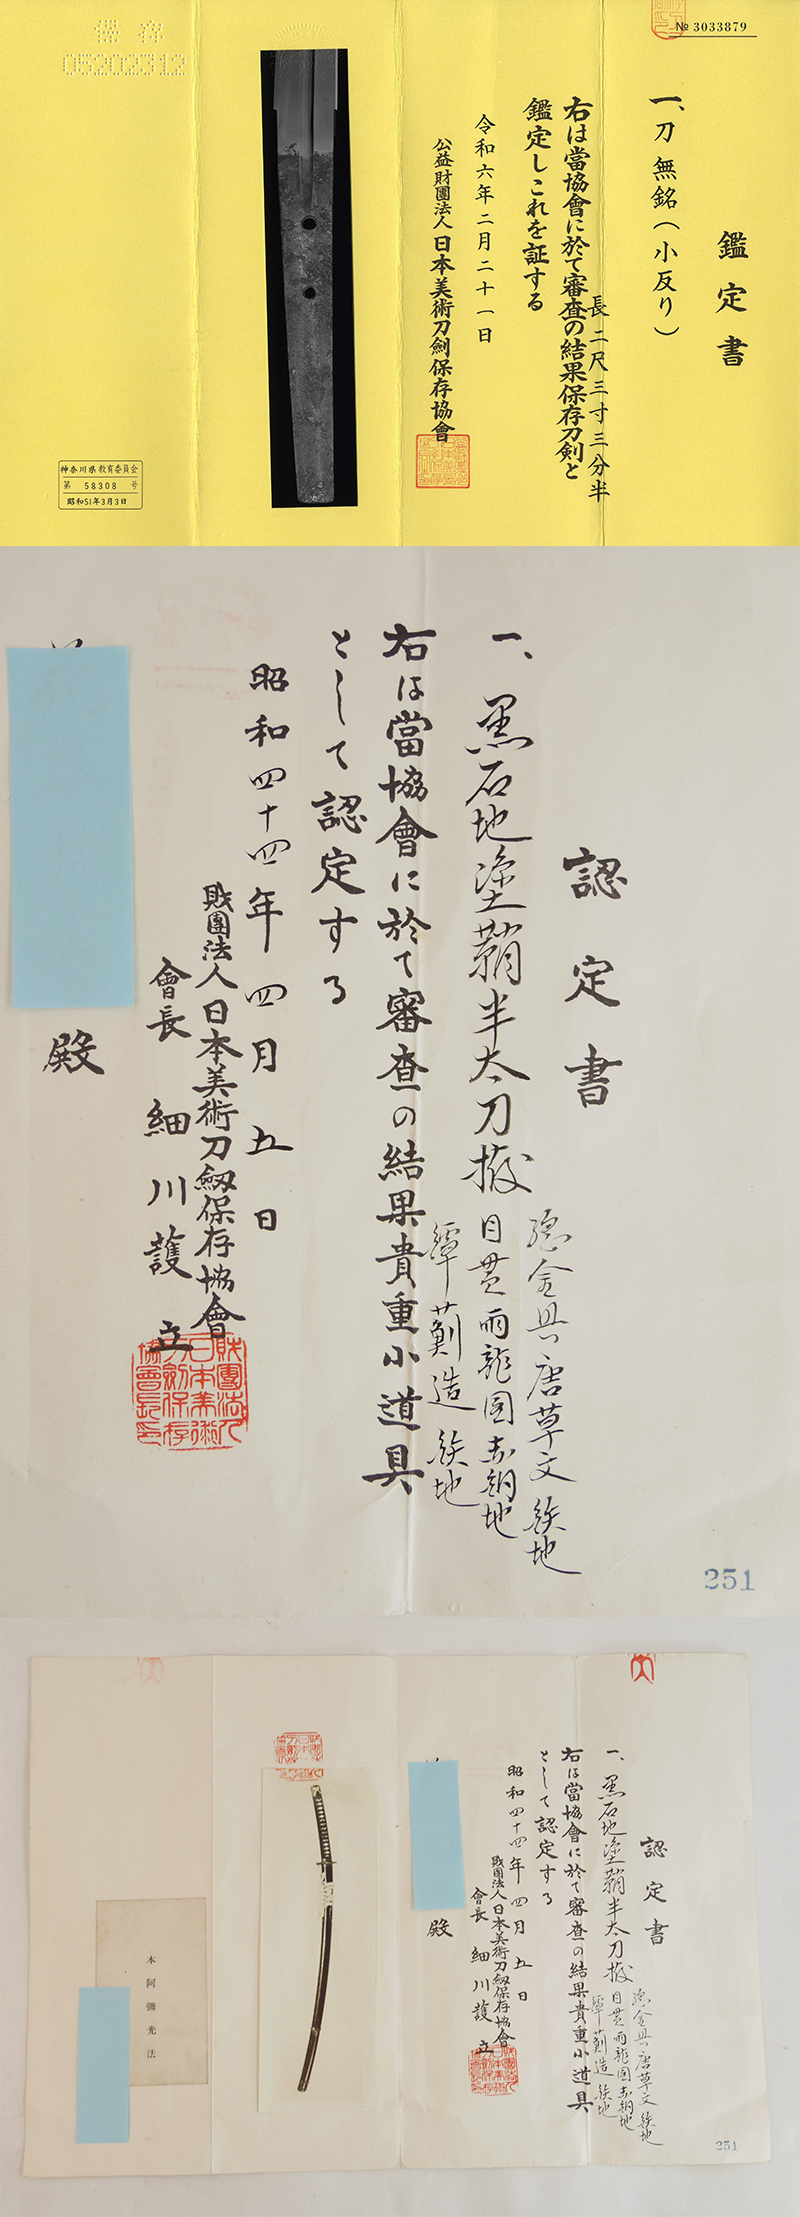 № 3033879
鑑定書
一、刀 無銘（小反り）
長二尺三寸三分半
右は當協會に於て審査の結果保存刀剣と
鑑定しこれを証する
令和六年二月二十一日
公益財團法人日本美術刀劍保存協會
保存
05202312
神奈川県教育委員会
第 58308 号
昭和51年3月3日
認定書
一、黒石地塗鞘半太刀拵
総金具唐草文鉄地
目貫雨龍図赤銅地
鐔薊造鉄地
右は當協會に於て審査の結果貴重小道具
として認定する
昭和四十四年四月五日
財團法人日本美術刀劔保存協會
會長 細川護立
殿
251
認定書
一、黒石地塗鞘半太刀拵
総金具唐草文鉄地
目貫雨龍図赤銅地
鐔薊造鉄地
右は當協會に於て審査の結果貴重小道具
として認定する
昭和四十四年四月五日
財團法人日本美術刀劔保存協會
會長 細川護立
殿
本阿彌光法
251